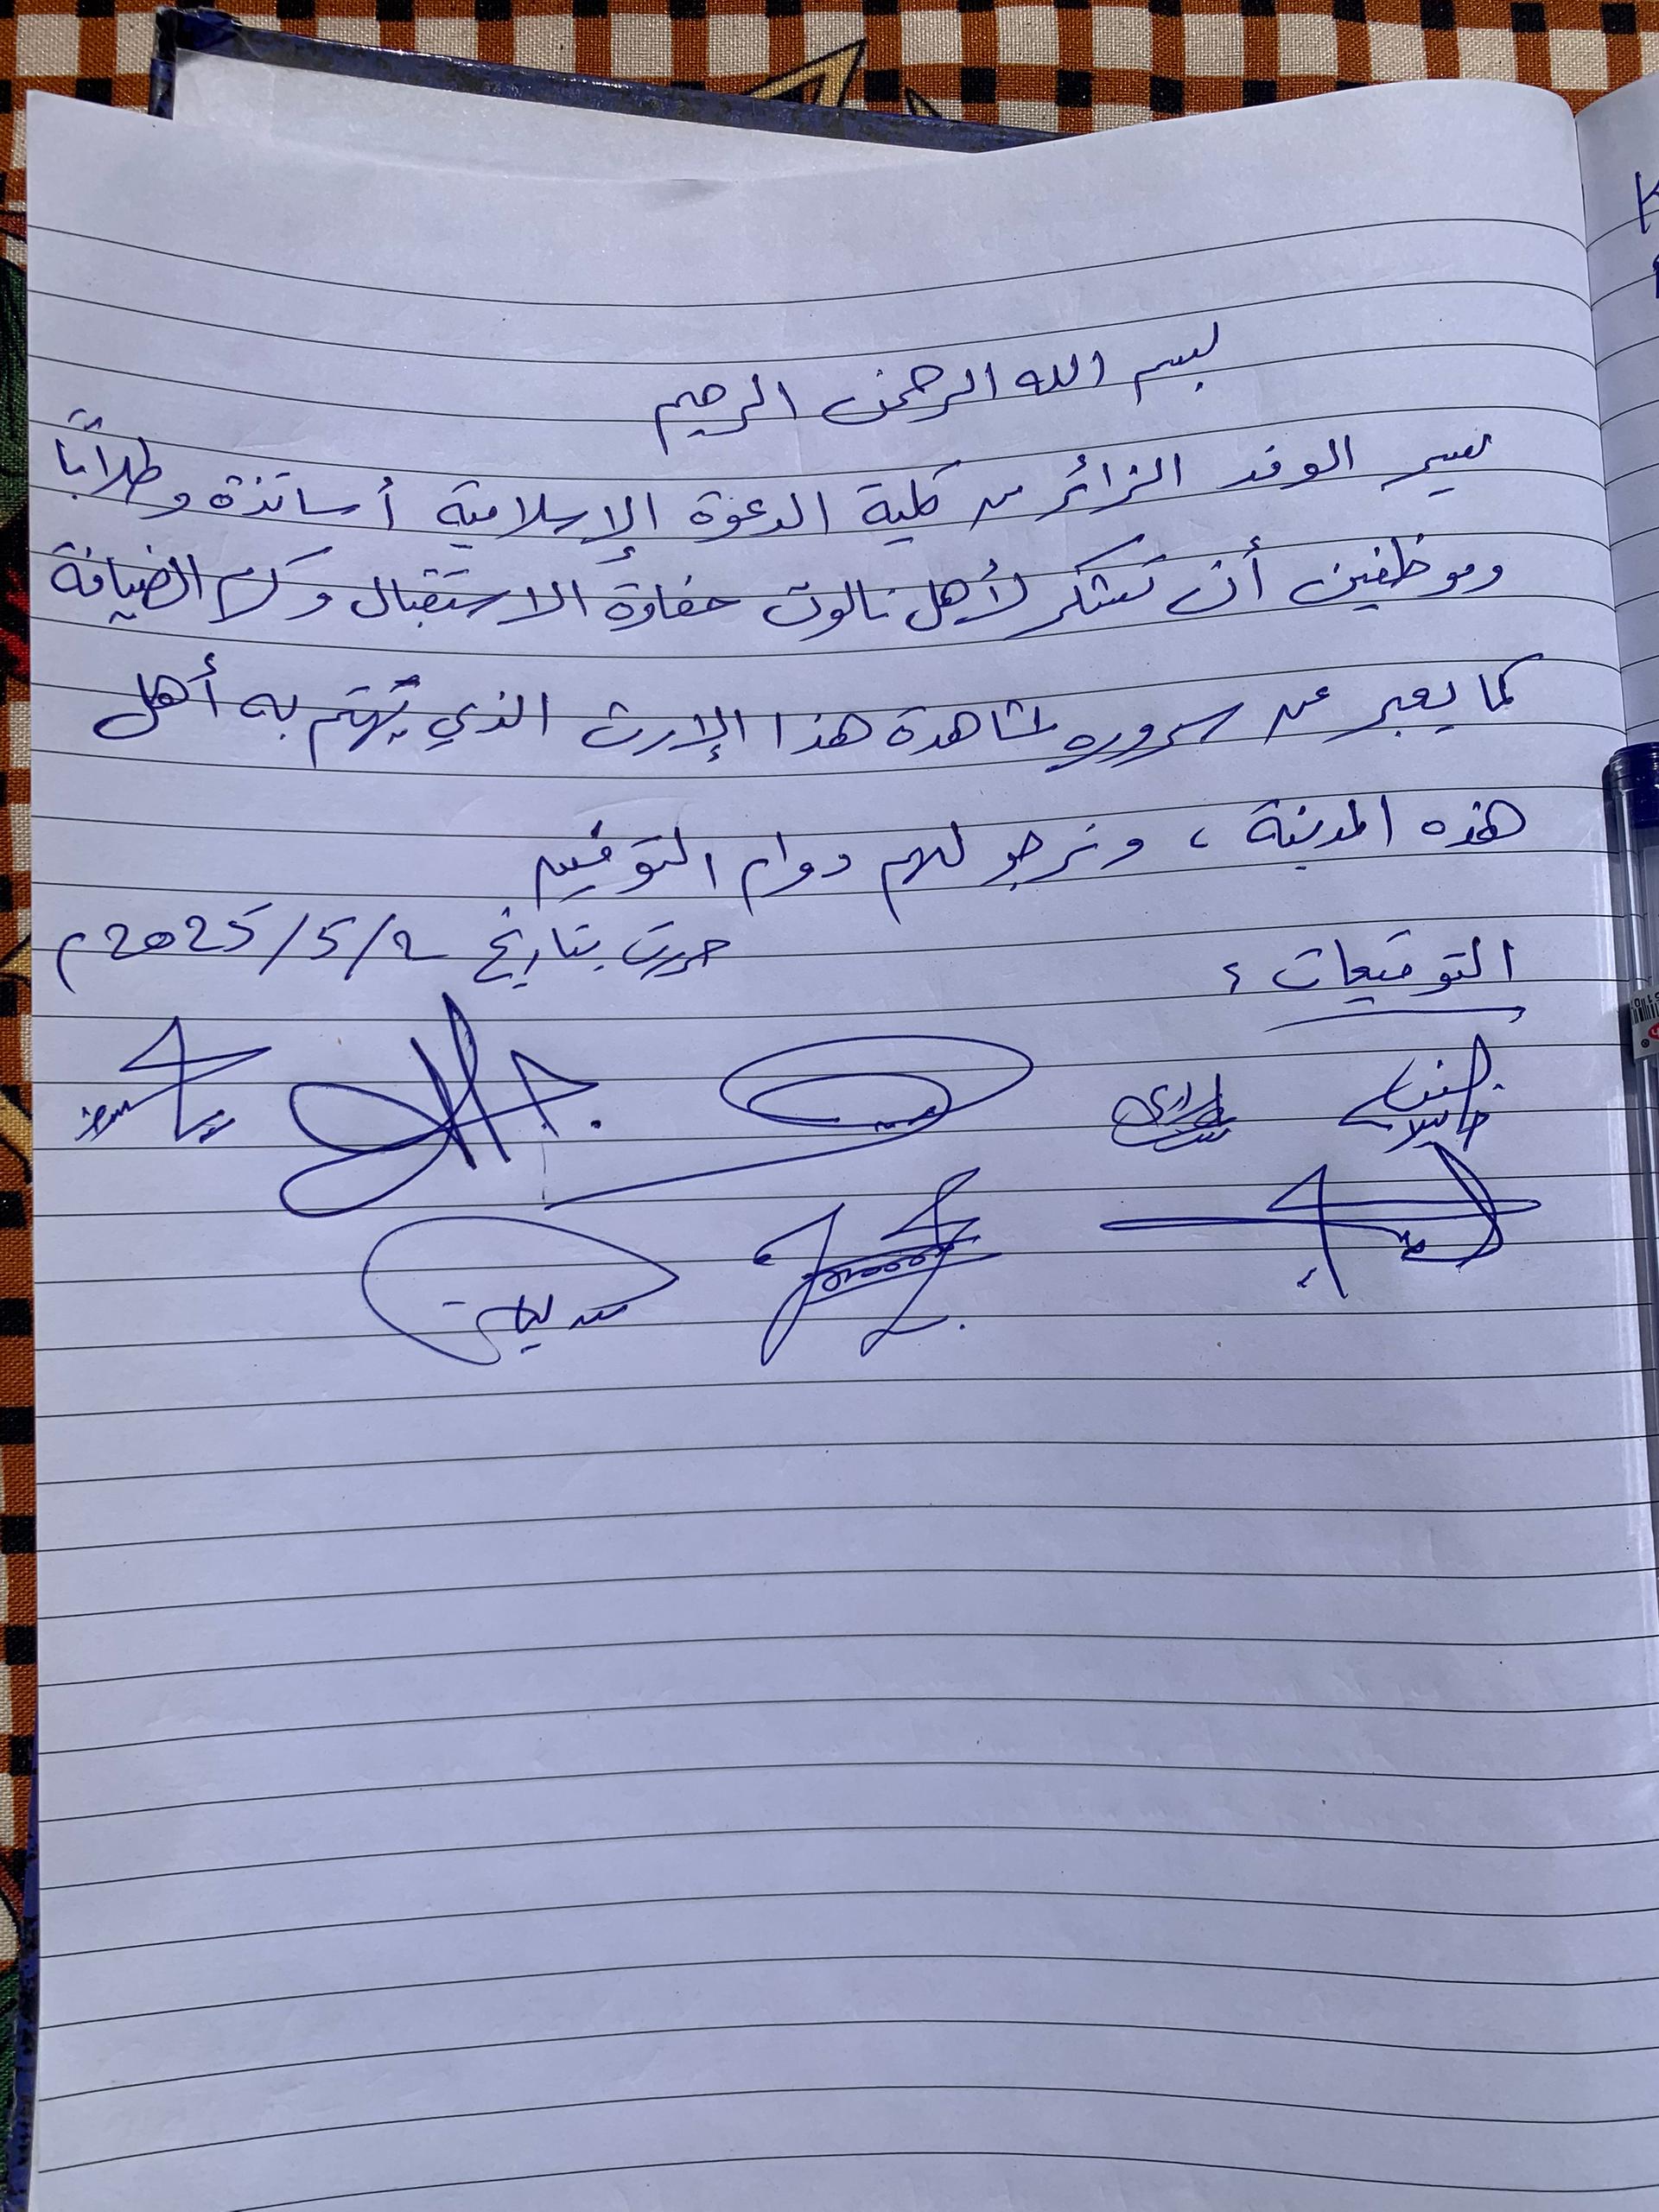 بسم الله الرحمن الرحيم
يسر الوفد الزائر من كلية الدعوة الإسلامية أساتذة وطلابًا
وموظفين أن تشكر لأهل نالوت حفاوة الاستقبال وكرم الضيافة
كما يعبر عن سروره لمشاهدة هذا الإرث الذي يهتم به أهل
هذه المدينة ، ونرجو لهم دوام التوفيق
حررت بتاريخ 2025/5/2م
التوقيعات :